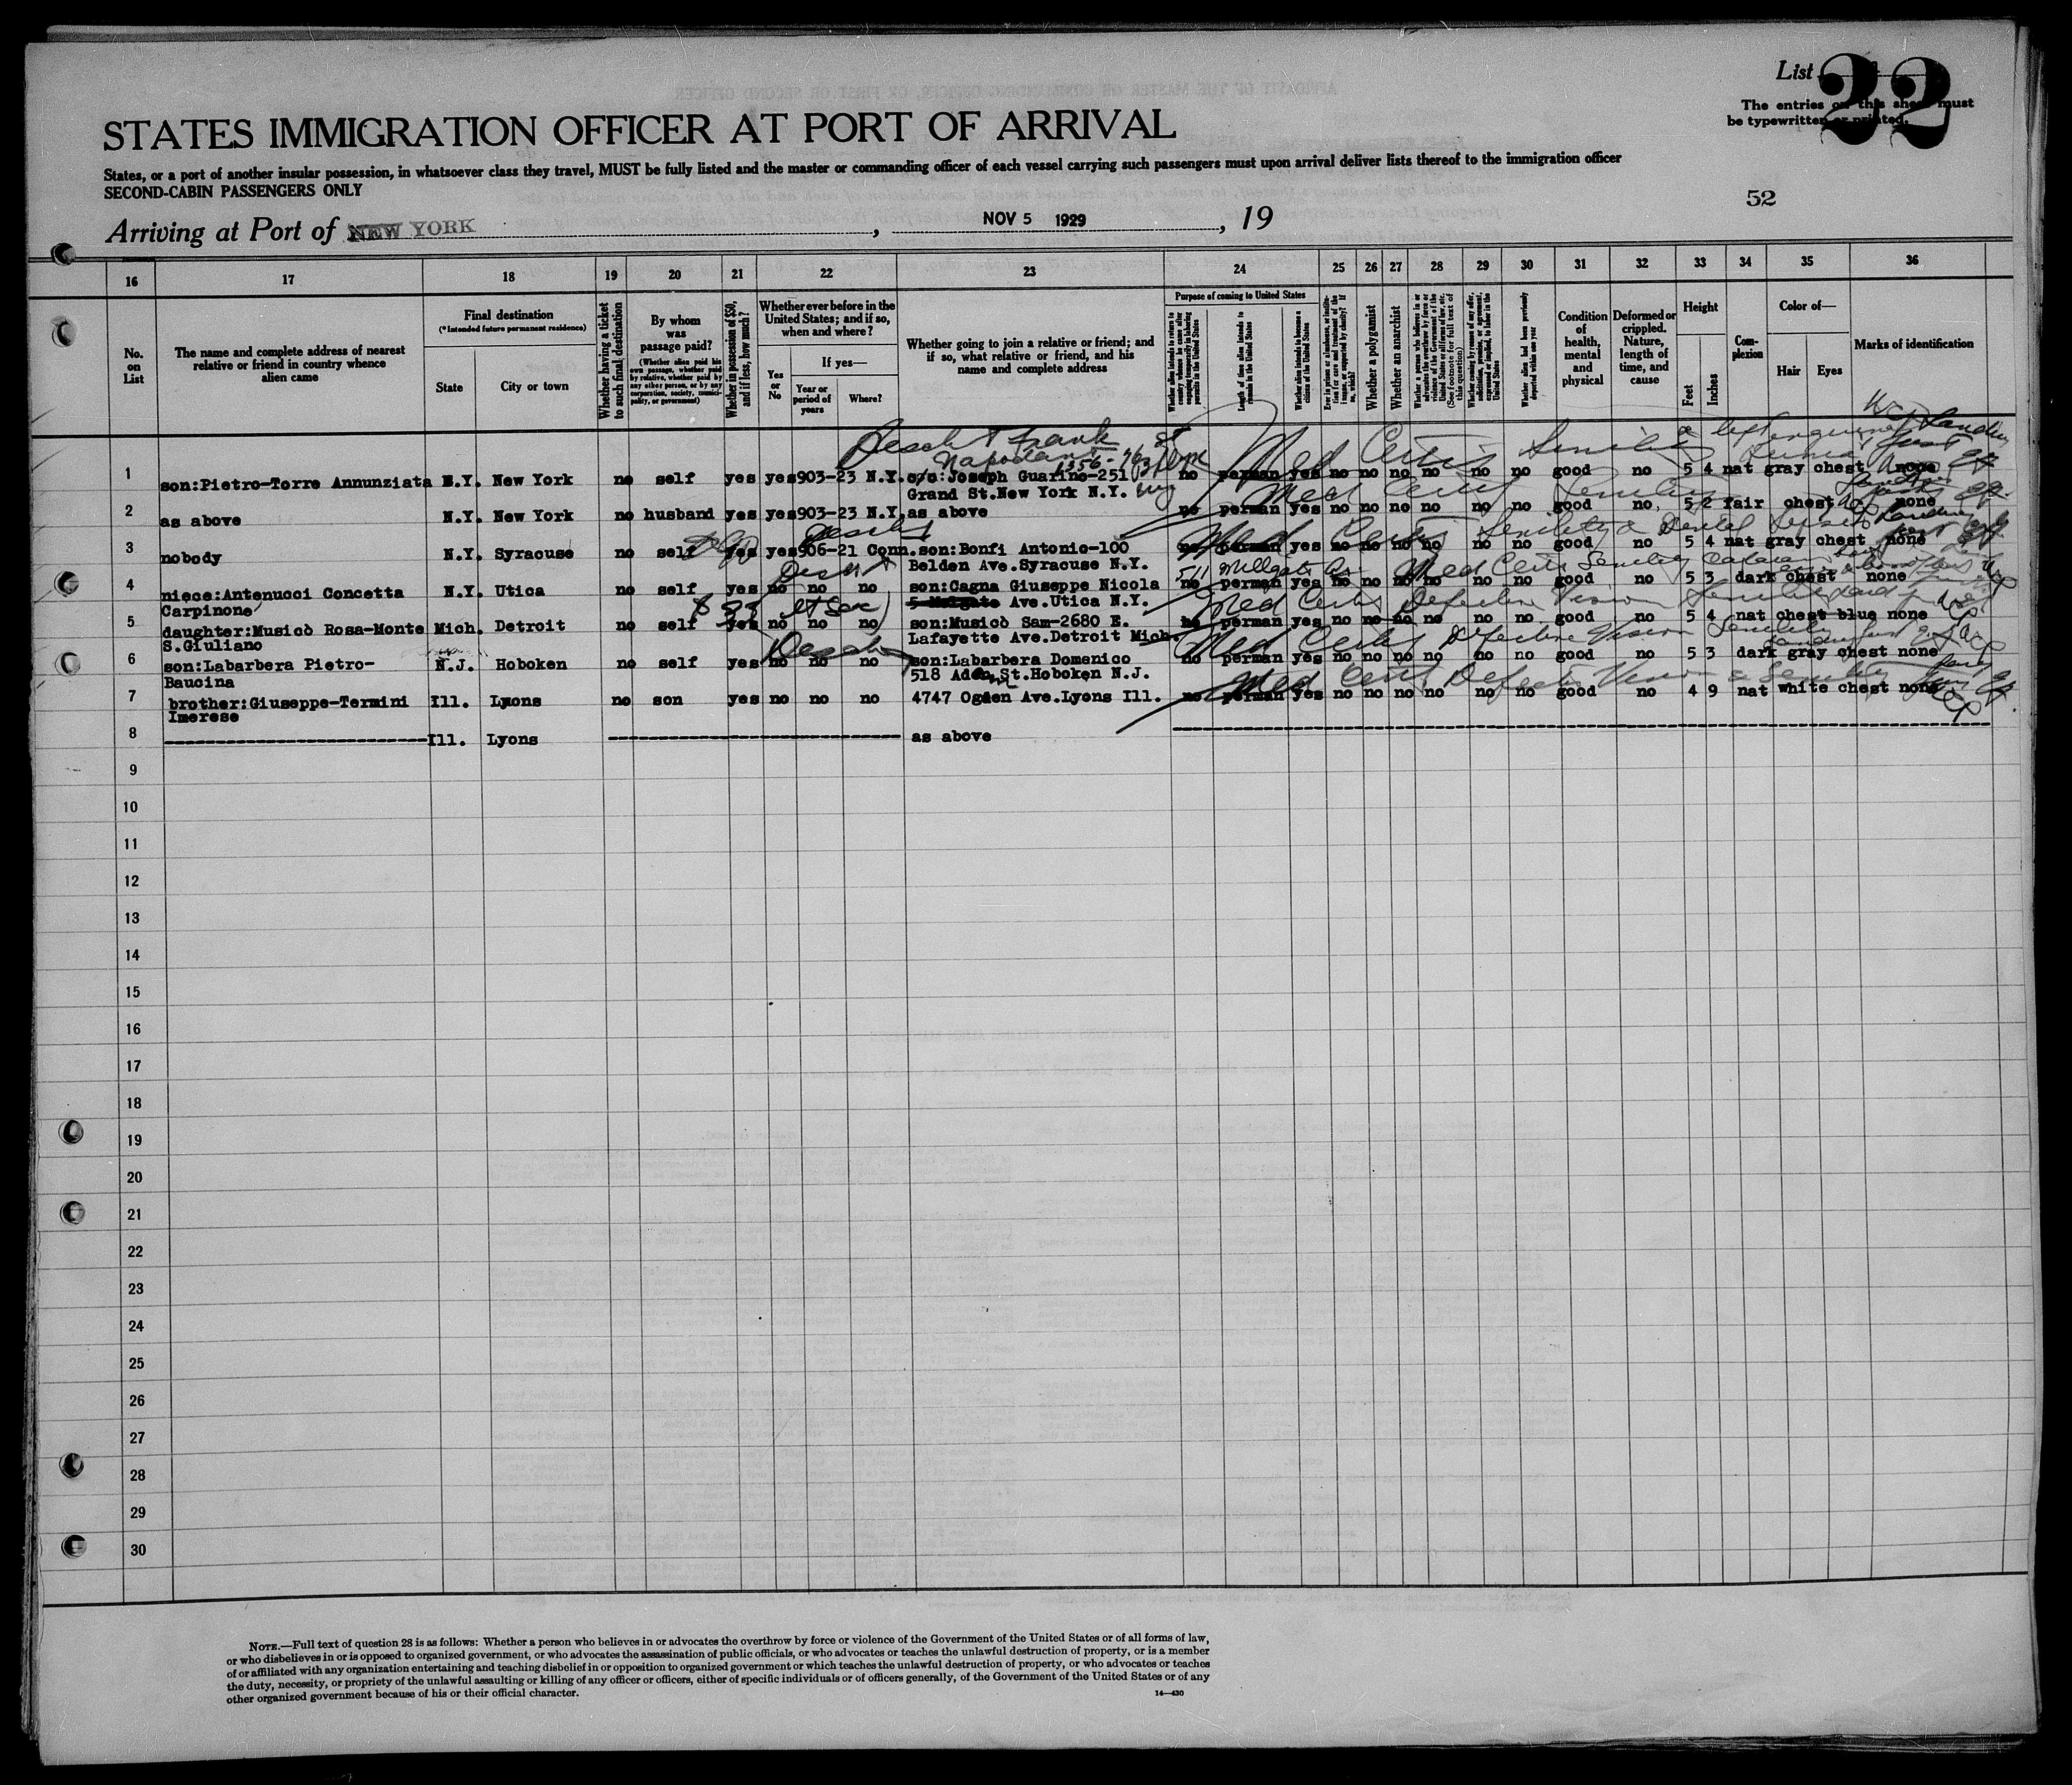 List 22
The entries on this sheet must
be typewritten or printed.
STATES IMMIGRATION OFFICER AT PORT OF ARRIVAL
States, or a port of another insular possession, in whatsoever class they travel, MUST be fully listed and the master or commanding officer of each vessel carrying such passengers must upon arrival deliver lists thereof to the immigration officer
SECOND-CABIN PASSENGERS ONLY
52
Arriving at Port of NEW YORK, NOV 5 1929, 19
16 17 18 19 20 21 22 23 24 25 26 27 28 29 30 31 32 33 34 35 36
No. on List
The name and complete address of nearest relative or friend in country whence alien came
Final destination
(*Intended future permanent residence)
State
City or town
Whether having a ticket to such final destination
By whom was passage paid?
(Whether alien paid his own passage, whether paid by relative, whether paid by any other person, or by any corporation, society, municipality, or government)
Whether in possession of $50, and if less, how much?
Whether ever before in the United States; and if so, when and where?
Yes or No
If yes—
Year or period of years
Where?
Whether going to join a relative or friend; and if so, what relative or friend, and his name and complete address
Purpose of coming to United States
Length of time alien intends to remain in the United States
Whether alien intends to become a citizen of the United States
Whether a polygamist
Whether an anarchist
(See footnote for full text of this question)
Whether alien had been previously deported within one year
Condition of health, mental and physical
Deformed or crippled. Nature, length of time, and cause
Height
Feet
Inches
Complexion
Color of—
Hair
Eyes
Marks of identification
Frank
1 son:Pietro-Torre Annunziata N.Y. New York no self yes yes 903-23 N.Y. c/o:Joseph Guarino-251 no perman yes no no no no no no good no 5 4 nat gray chest none
Grand St.New York N.Y.
Med Certif Senility
2 as above N.Y. New York no husband yes yes 903-23 N.Y. as above no perman yes no no no no no no good no 5 2 fair chest none
Med Certif Senility
3 nobody N.Y. Syracuse no self yes yes 906-21 Conn. son:Bonfi Antonio-100 no perman yes no no no no no no good no 5 4 nat gray chest none
Belden Ave.Syracuse N.Y.
Med Certif Senility
511 Millgate Av.
4 niece:Antenucci Concetta N.Y. Utica no self yes no no no son:Cagna Giuseppe Nicola no perman yes no no no no no no good no 5 3 dark chest none
Carpinone 5 Malgate Ave.Utica N.Y.
Med Certif Senility
5 daughter:Musicò Rosa-Monte Mich. Detroit no self yes no no no son:Musicò Sam-2680 E. no perman yes no no no no no no good no 5 4 nat chest blue none
S.Giuliano Lafayette Ave.Detroit Mich.
Med Certif Defective Vision Senility
6 son:Labarbera Pietro- N.J. Hoboken no self yes no no no son:Labarbera Domenico no perman yes no no no no no no good no 5 3 dark gray chest none
Baucina 518 Adam St.Hoboken N.J.
Med Certif Defective Vision Senility
7 brother:Giuseppe-Termini Ill. Lyons no son yes no no no 4747 Ogden Ave.Lyons Ill. no perman yes no no no no no no good no 4 9 nat white chest none
Imerese
Med Certif Defective Vision & Senility
8 Ill. Lyons as above
9
10
11
12
13
14
15
16
17
18
19
20
21
22
23
24
25
26
27
28
29
30
NOTE.—Full text of question 28 is as follows: Whether a person who believes in or advocates the overthrow by force or violence of the Government of the United States or of all forms of law,
or who disbelieves in or is opposed to organized government, or who advocates the assassination of public officials, or who advocates or teaches the unlawful destruction of property, or is a member
of or affiliated with any organization entertaining and teaching disbelief in or opposition to organized government or which teaches the unlawful destruction of property, or who advocates or teaches
the duty, necessity, or propriety of the unlawful assaulting or killing of any officer or officers, either of specific individuals or of officers generally, of the Government of the United States or of any
other organized government because of his or their official character.
14—430